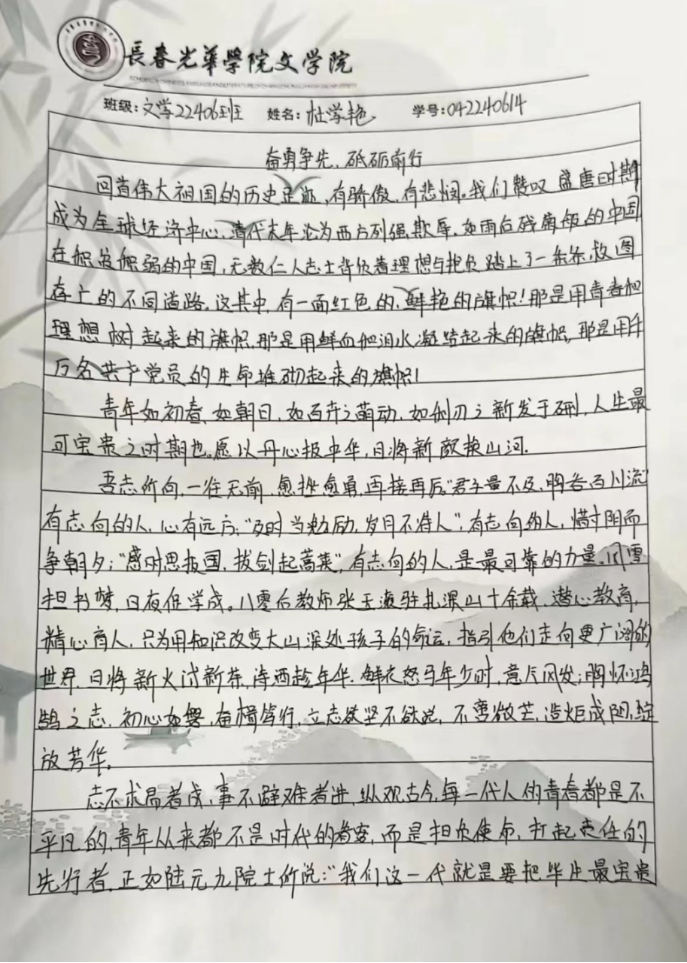 長春光華學院文学院
班级:文学22406班 姓名:杜学艳 学号:042240614
奋勇争先,砥砺前行
回首伟大祖国的历史足迹,有骄傲,有悲悯,我们赞叹盛唐时期
成为全球经济中心,清代末年沦为西方列强欺辱,如雨后残腐败的中国
在积贫积弱的中国,无数仁人志士背负着理想与抱负踏上了一条条救国
存亡的不同道路,这其中,有一面红色的,鲜艳的旗帜!那是用青春和
理想树起来的旗帜,那是用鲜血和泪水凝结起来的旗帜,那是用千
万名共产党员的生命堆砌起来的旗帜!
青年如初春,如朝日,如百卉之萌动,如利刃之新发于硎,人生最
可宝贵之时期也,愿以丹心报中华,日将新颜换山河.
吾志所向,一往无前,愈挫愈勇,再接再厉,"君子量不及,胸吞百川流"
有志向的人,心有远方;"及时当勉励,岁月不待人",有志向的人,惜寸阴而
争朝夕;"感时思报国,拔剑起蒿莱",有志向的人,是最可靠的力量,风雪
担书梦,日夜促学成。八零后教师张玉滚驻扎深山十余载,潜心教育,
精心育人,只为用知识改变大山深处孩子的命运,指引他们走向更广阔的
世界,日将新火试新茶,诗酒趁年华.鲜衣怒马年少时,意气风发,胸怀鸿
鹄之志,初心如磐,奋楫笃行,立志欲坚不欲锐,不畏微芒,造炬成阳,绽
放芳华。
志不求易者成,事不避难者进,纵观古今,每一代人的青春都是不
平凡的,青年从来都不是时代的看客,而是担负使命,扛起责任的
先行者,正如陆元九院士所说:"我们这一代就是要把毕生最宝贵